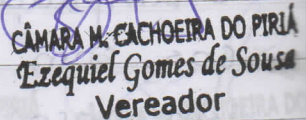 CÂMARA M. CACHOEIRA DO PIRIÁ
Ezequiel Gomes de Sousa
Vereador